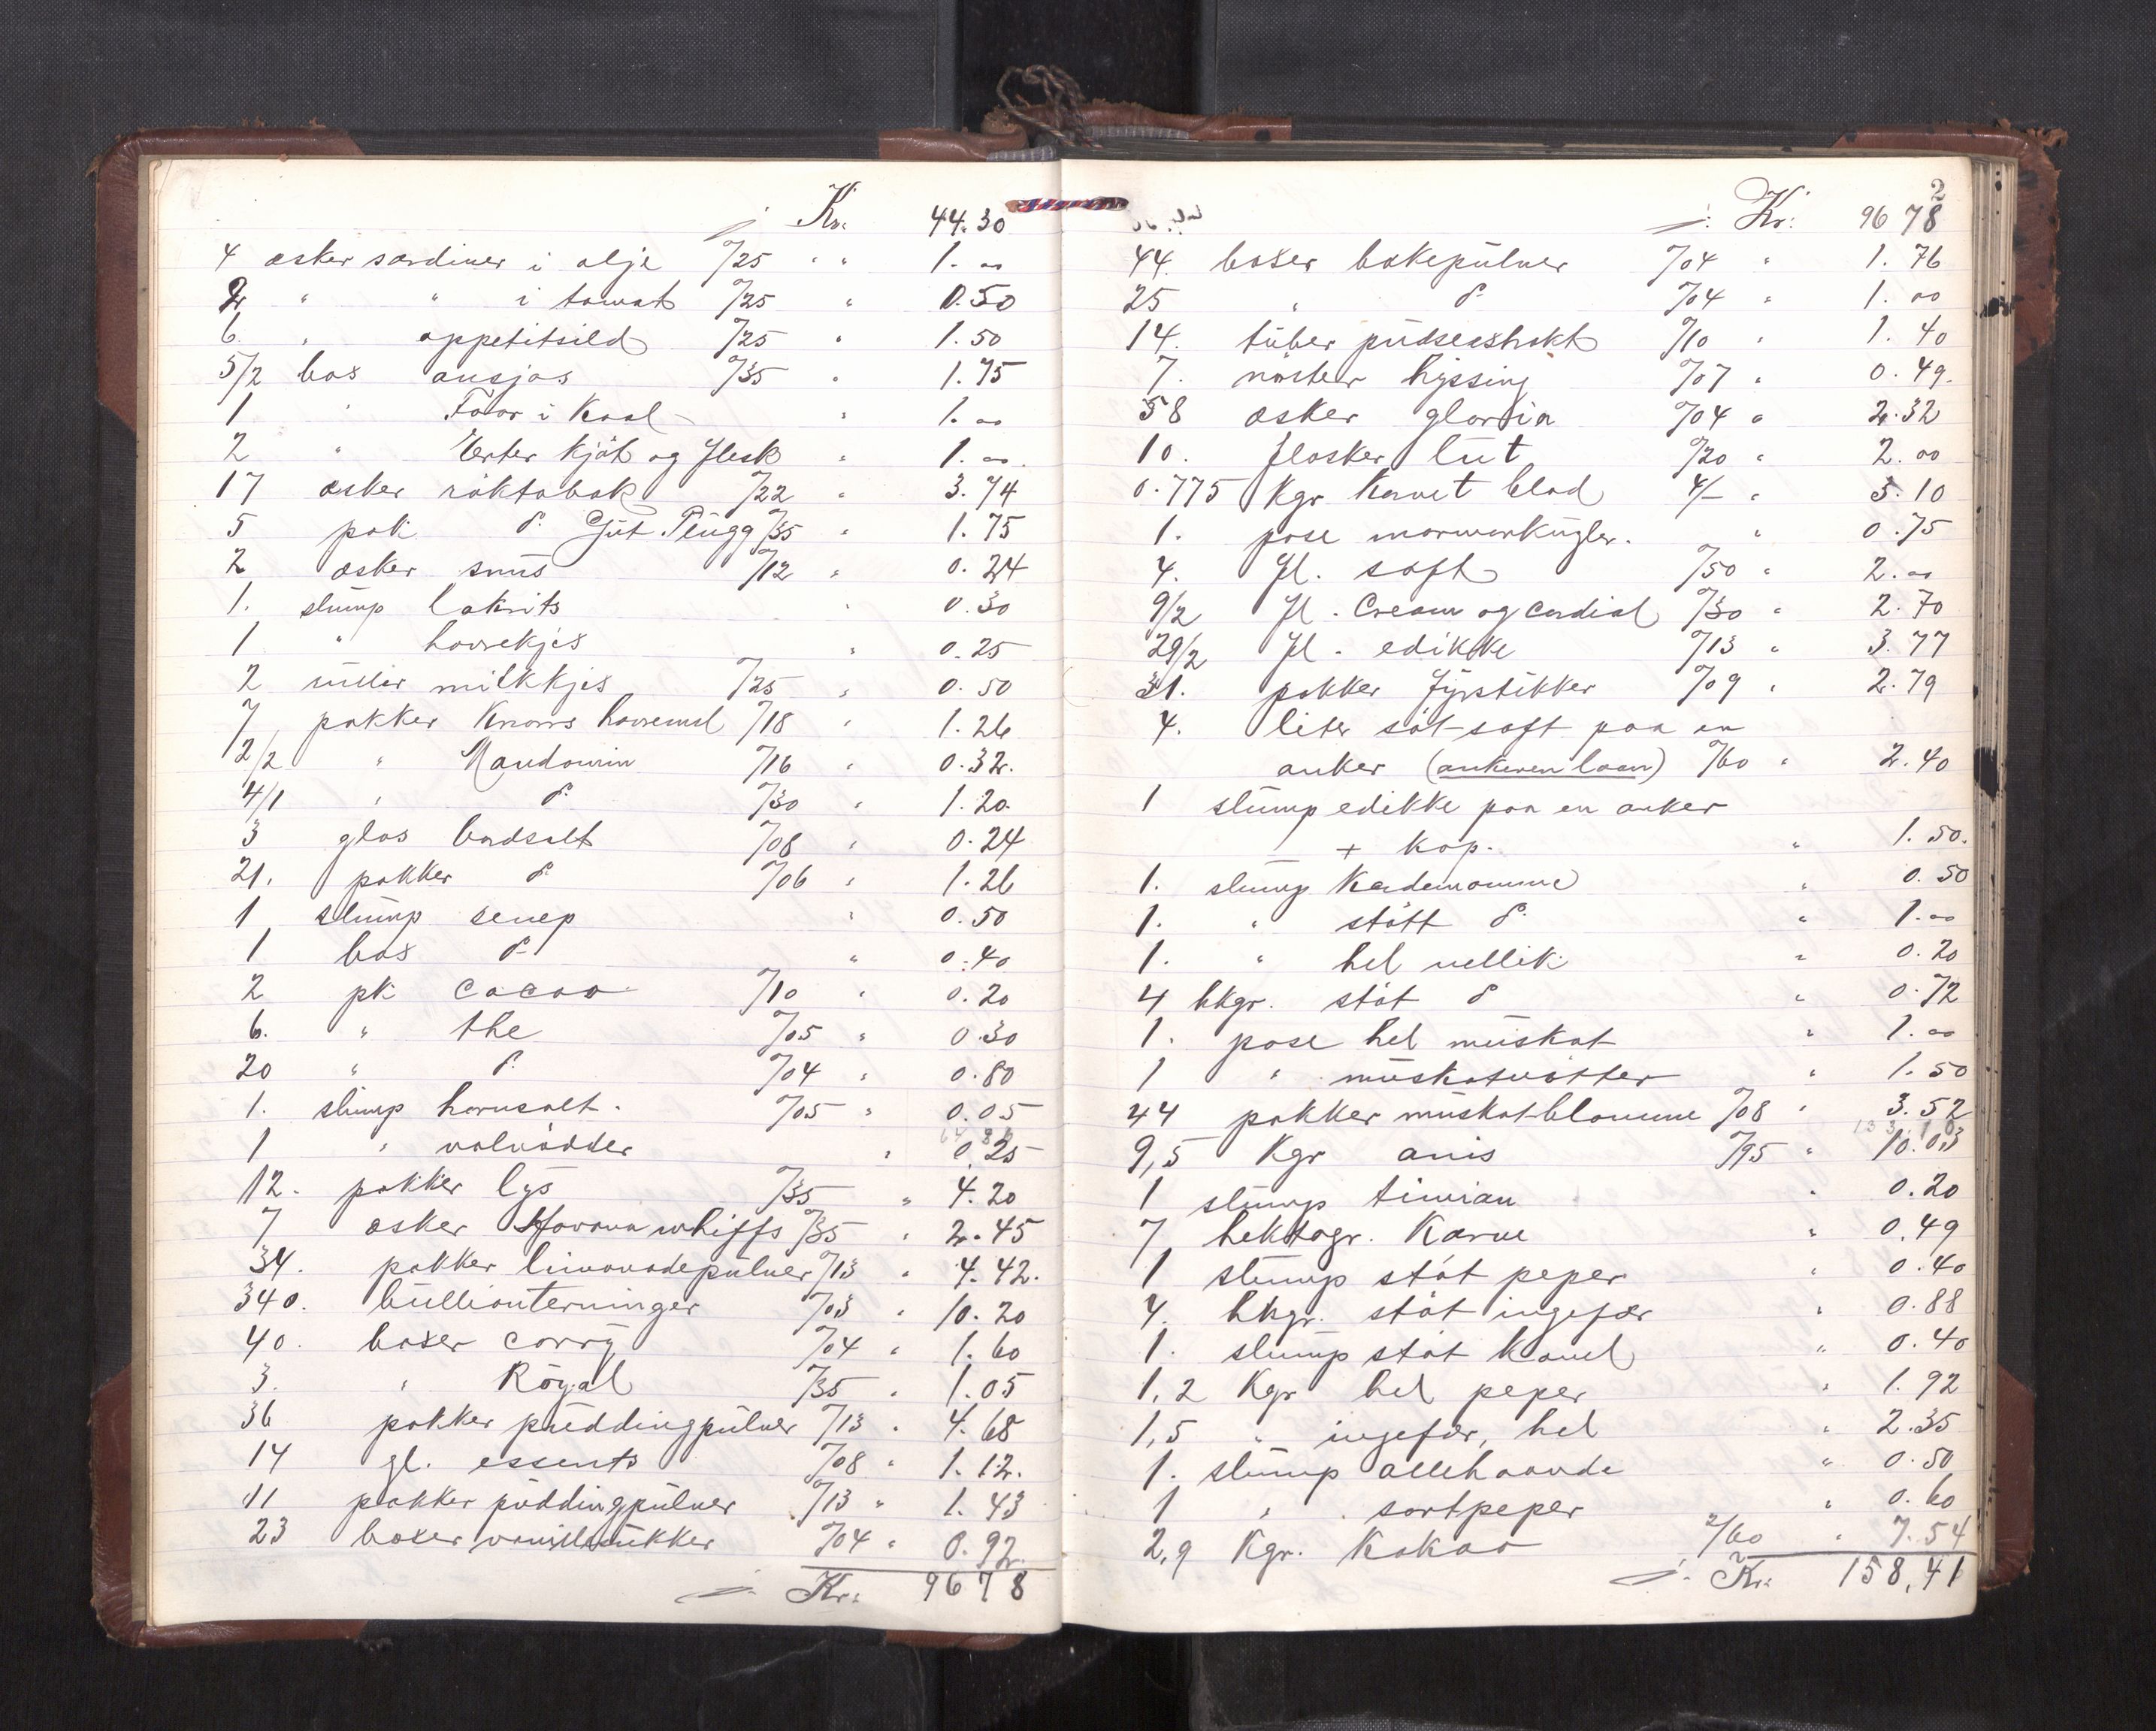 j. Kr. 44.30
4 æsker sardiner i olje º/25 " " 1.00
2 " " i tomat º/25 " 0.50
6 " appetitsild º/25 " 1.50
5/2 box ansjos º/35 " 1.75
1 " Faar i Kaal " 1.00
2 " Erter kjöt og flesk " 1.00
17 æsker röktobak º/22 " 3.74
5 pak. d. Gut. Plugg º/35 " 1.75
2 æsker snus º/12 " 0.24
1. slump lakrits " 0.30
1 " havrekjes " 0.25
2 ruller milkkjes º/25 " 0.50
7 pakker Knorrs havremel º/18 " 1.26
2/2 " Mandamin º/16 " 0.32.
4/1 " d. º/30 " 1.20.
3 glas bordsalt º/08 " 0.24
21. pakker d. º/06 " 1.26
1 slump senep " 0.50
1 box d. " 0.40
2 pk cacao º/10 " 0.20
6. " the º/05 " 0.30
20 " d. º/04 " 0.80
1. slump hornsalt. º/05 " 0.05
1 " valnödder " 0.25
12. pakker lys º/35 " 4.20
7 æsker Havana whiffs º/35 " 2.45
34. pakker limonadepulver º/13 " 4.42.
340. bullionterninger º/03 " 10.20
40. boxer corry º/04 " 1.60
3. " Röyal º/35 " 1.05
36 pakker puddingpulver º/13 " 4.68
14 gl. essents º/08 " 1.12.
11 pakker puddingpulver º/13 " 1.43
23 boxer vanillesukker º/04 " 0.92.
j. Kr. 96 78
2
j. Kr. 96 78
44. boxer bakepulver º/04 " 1.76
25 " d. º/04 " 1.00
14. tuber pudseextrakt º/10 " 1.40
7. nöster hyssing º/07 " 0.49.
58 æsker gloria º/04 " 2.32
10. flasker lut º/20 " 2.00
0.775 Kgr. Karvet blad 4/- " 3.10
1. pose marmorkugler. " 0.75
4. fl. saft º/50 " 2.00
9/2 fl. Cream og Cordial º/30 " 2.70
29/2 fl. edikke º/13 " 3.77
31. pakker fyrstikker º/09 " 2.79
4. liter söt-saft paa en
anker (ankeren laan) º/60 " 2.40
1 slump edikke paa en anker
+ kop. " 1.50.
1. slump Kardemomme " 0.50
1. " stött d. " 1.00
1. " hel nellik " 0.20
4 hkgr. stöt d " 0.72
1. pose hel muskat " 1.00
1 " muskatnötter " 1.50
44 pakker muskat-blomme º/08 " 3.52
9,5 Kgr anis º/95 " 10.03
1 slump timian " 0.20
7 hektogr. Karve " 0.49
1 slump stöt peper " 0.40
4. hkgr. stöt ingefær " 0.88
1. slump stöt kanel " 0.40
1,2 Kgr hel peper " 1.92
1,5 " ingefær, hel " 2.35
1. slump allehaande " 0.50
1 " sortpeper " 0.60
2,9 Kgr. Kakao 2/60 " 7.54
j. Kr. 158,41